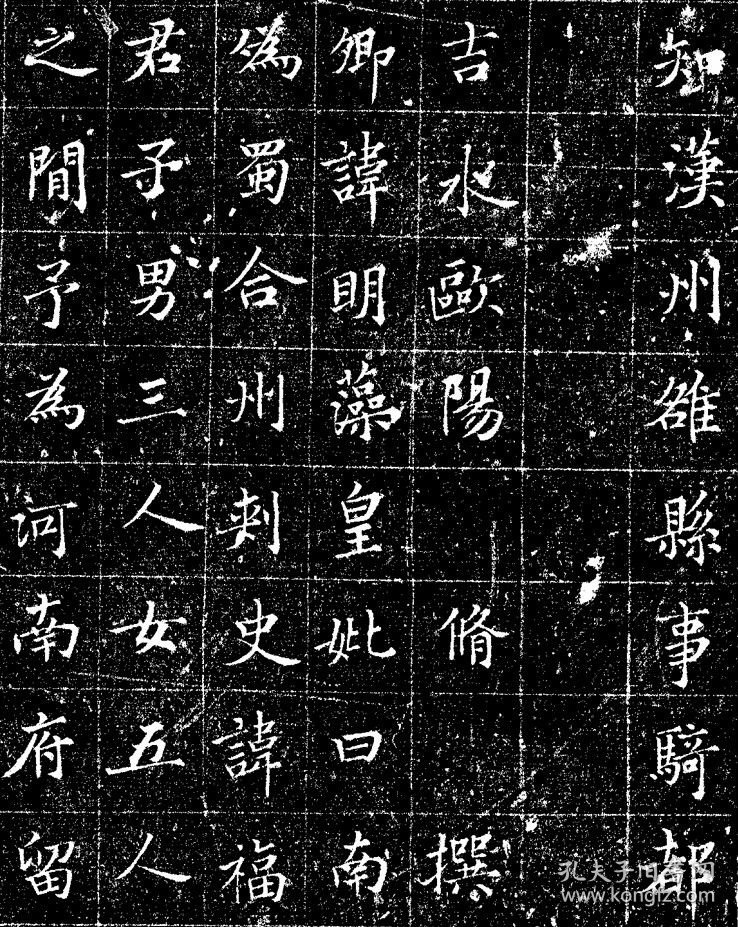 知漢州雒縣事騎都
吉水歐陽脩撰
卿諱明藻皇妣曰南
偽蜀合州刺史諱福
君子男三人女五人
之間予為河南府留
孔夫子旧书网
www.kongfz.com